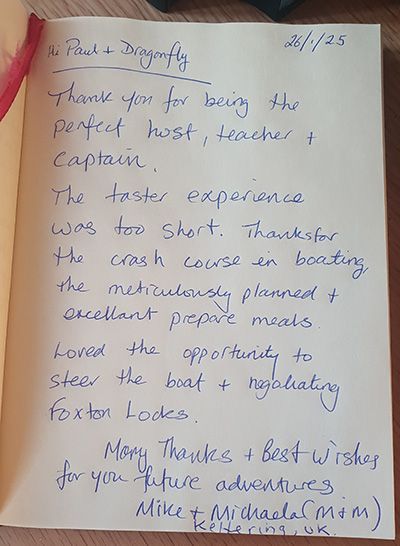 26/1/25
Hi Paul + Dragonfly
Thank you for being the
perfect host, teacher +
Captain.
The taster experience
was too short. Thanks for
the crash course in boating,
the meticulously planned +
excellant prepare meals.
Loved the opportunity to
steer the boat + negotiating
Foxton Locks.
Many Thanks + Best Wishes
for you future adventures
Mike + Michaela (M+M)
Kettering, UK.